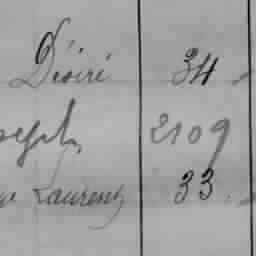 Désiré 34
seph 2109
Laurent 33